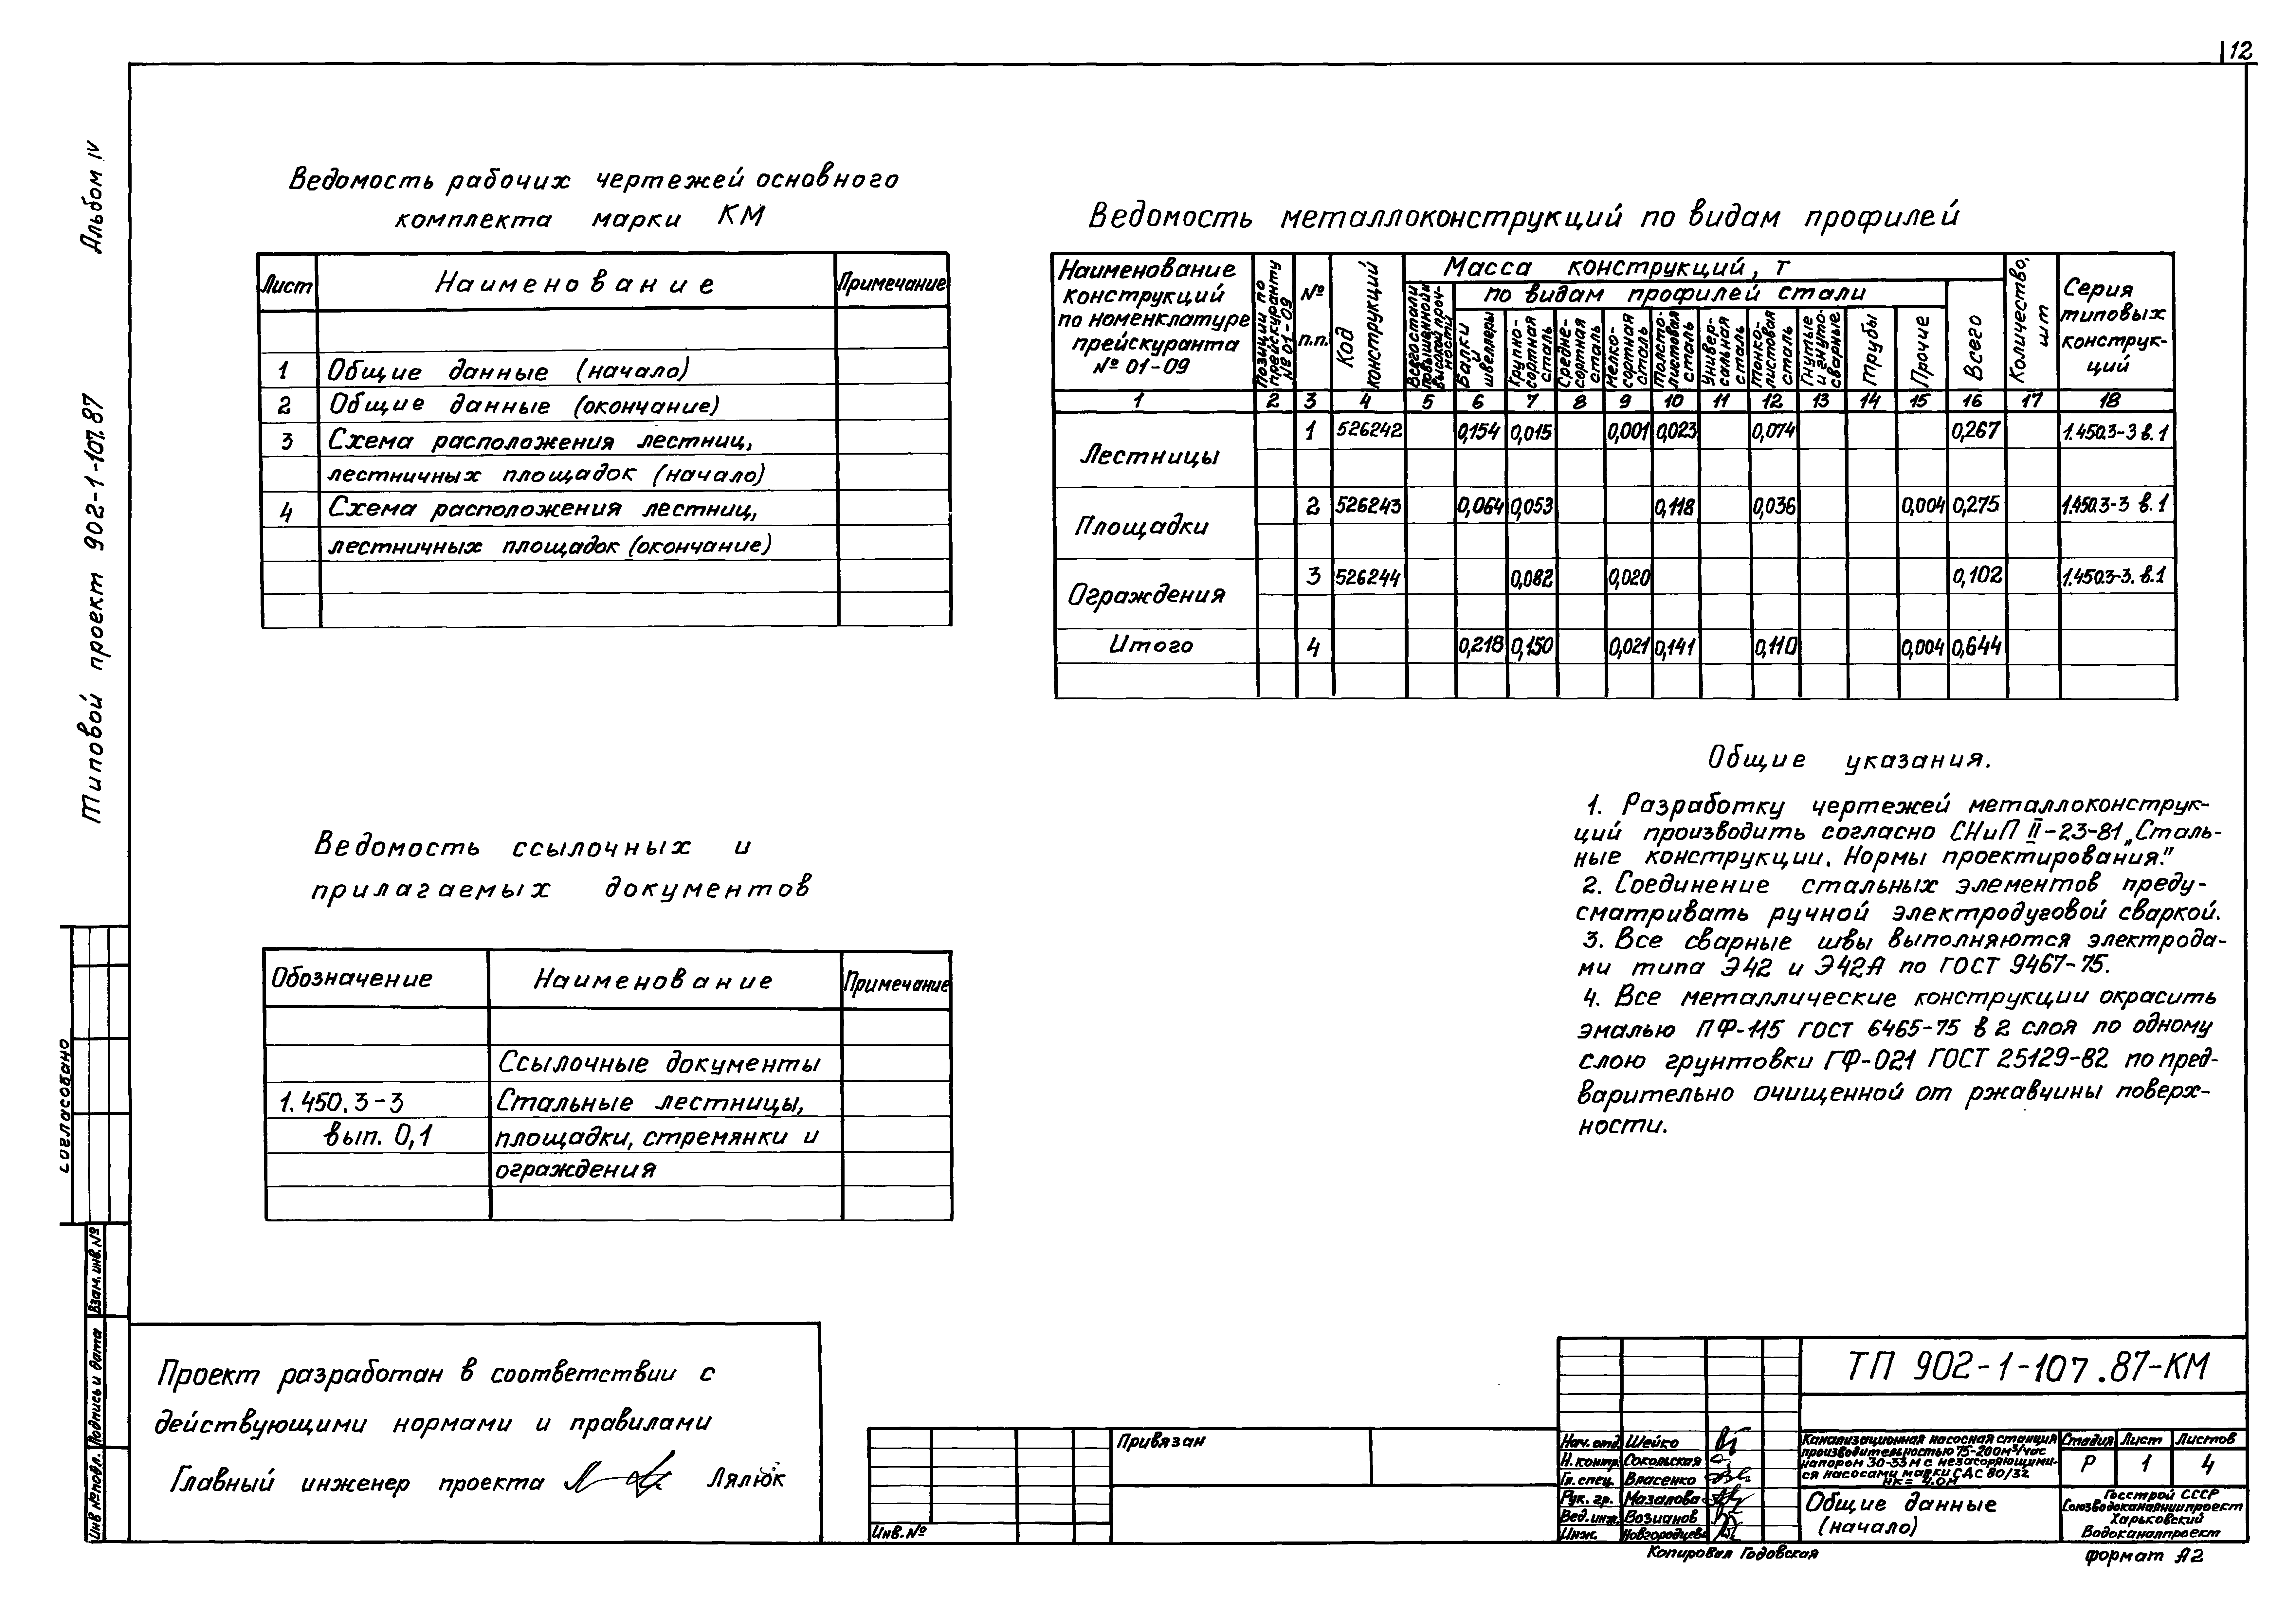 12
Альбом IV
Типовой проект 902-1-107.87
Ведомость рабочих чертежей основного
комплекта марки КМ
Лист Наименование Примечание
1 Общие данные (начало)
2 Общие данные (окончание)
3 Схема расположения лестниц,
лестничных площадок (начало)
4 Схема расположения лестниц,
лестничных площадок (окончание)
Ведомость металлоконструкций по видам профилей
Наименование
конструкций
по номенклатуре
прейскуранта
№ 01-09
Позиции по
прейскуранту
№ 01-09
№
п.п.
Код
конструкций
Масса конструкций, т
Всего стали
повышенной и
высокой проч-
ности
по видам профилей стали
Балки
и
швеллеры
Крупно-
сортная
сталь
Средне-
сортная
сталь
Мелко-
сортная
сталь
Толсто-
листовая
сталь
Универ-
сальная
сталь
Тонко-
листовая
сталь
Гнутые
и гнуто-
сварные
Трубы
Прочие
Всего
Количество,
шт
Серия
типовых
конструк-
ций
1 2 3 4 5 6 7 8 9 10 11 12 13 14 15 16 17 18
Лестницы 1 526242 0,154 0,015 0,001 0,023 0,074 0,267 1.450.3-3 в.1
Площадки 2 526243 0,064 0,053 0,118 0,036 0,004 0,275 1.450.3-3 в.1
Ограждения 3 526244 0,082 0,020 0,102 1.450.3-3. в.1
Итого 4 0,218 0,150 0,021 0,141 0,110 0,004 0,644
Общие указания.
1. Разработку чертежей металлоконструк-
ций производить согласно СНиП II-23-81 „Сталь-
ные конструкции. Нормы проектирования."
2. Соединение стальных элементов преду-
сматривать ручной электродуговой сваркой.
3. Все сварные швы выполняются электрода-
ми типа Э42 и Э42А по ГОСТ 9467-75.
4. Все металлические конструкции окрасить
эмалью ПФ-115 ГОСТ 6465-75 в 2 слоя по одному
слою грунтовки ГФ-021 ГОСТ 25129-82 по пред-
варительно очищенной от ржавчины поверх-
ности.
Ведомость ссылочных и
прилагаемых документов
Обозначение Наименование Примечание
Ссылочные документы
1.450.3-3 Стальные лестницы,
вып. 0,1 площадки, стремянки и
ограждения
Согласовано
Взам. инв. №
Подпись и дата
Инв № подл.
Проект разработан в соответствии с
действующими нормами и правилами
Главный инженер проекта Лялюк
Привязан
Инв. №
Нач. отд. Шейко
Н. контр. Сокольская
Гл. спец. Власенко
Рук. гр. Мазалова
Вед. инж. Возианов
Инж. Новгородцева
ТП 902-1-107.87-КМ
Канализационная насосная станция
производительностью 75-200м³/час
напором 30-33 м с незасоряющими-
ся насосами марки СДС 80/32
Нк= 4.0м
Стадия Лист Листов
Р 1 4
Общие данные
(начало)
Госстрой СССР
Союзводоканалниипроект
Харьковский
Водоканалпроект
Копировал Годовская
формат А2